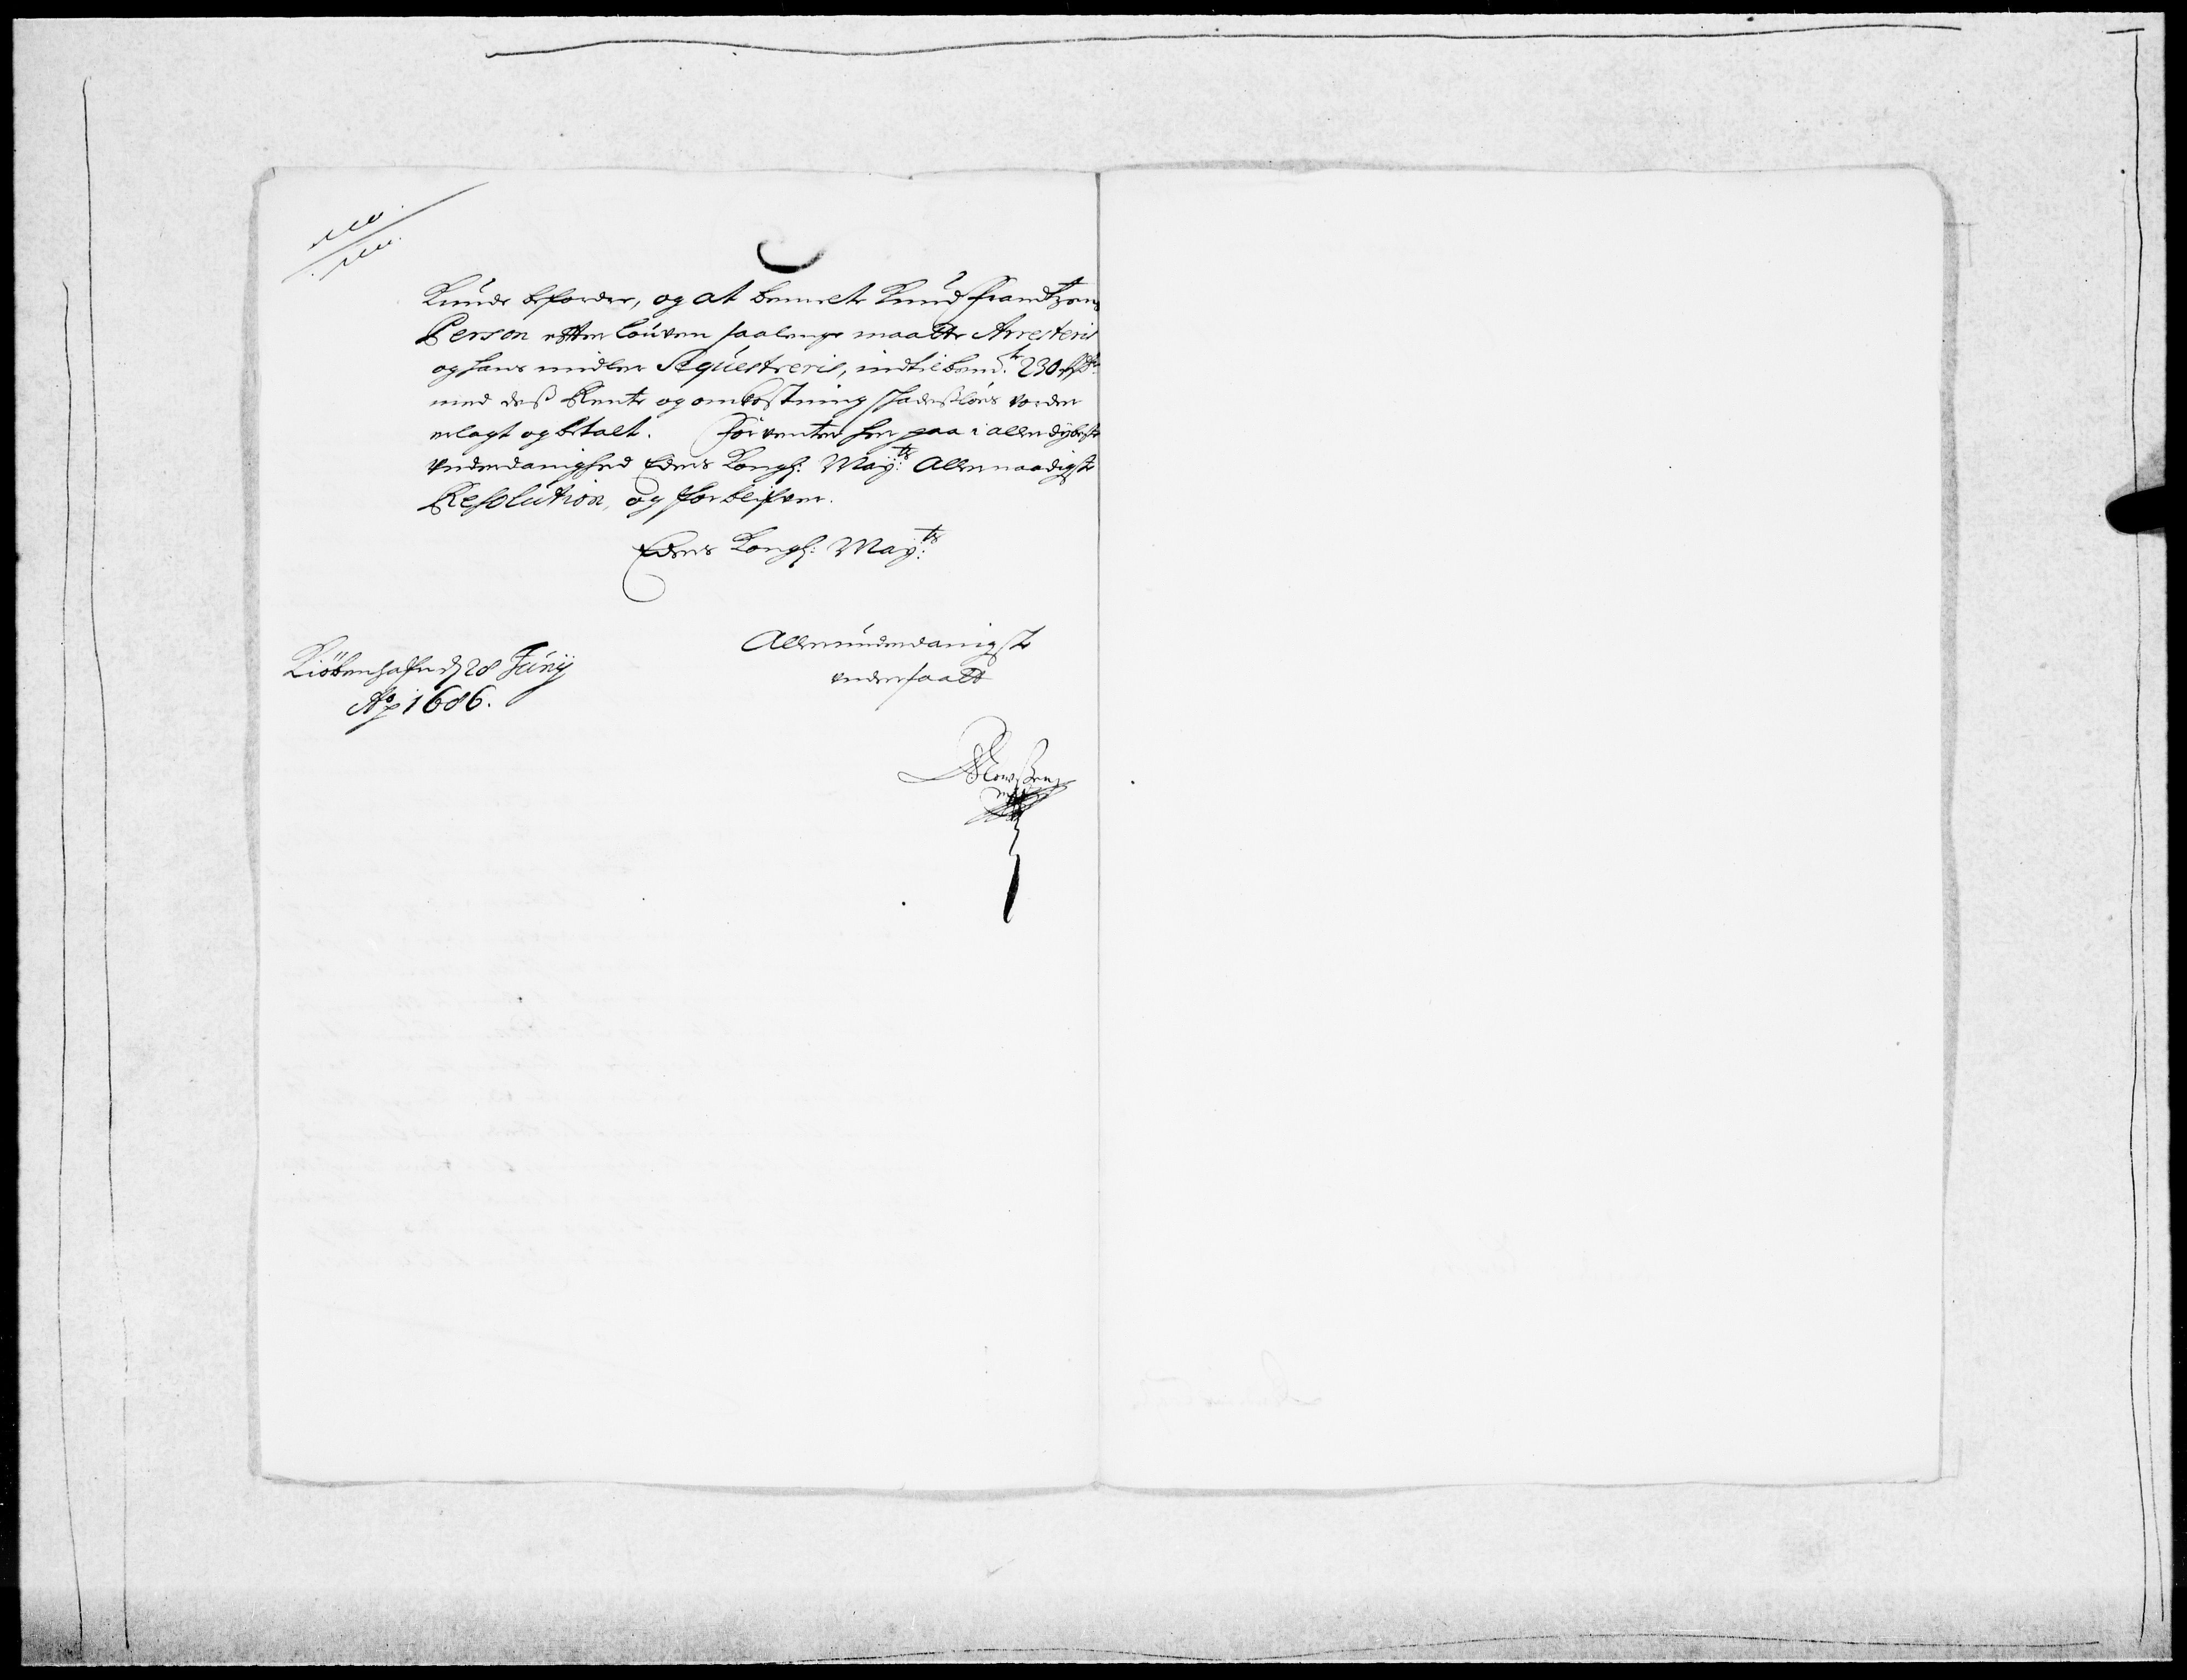 Kunde beforder, og at bemelte Knud Frandtzøns
Person efter Louven saalenge maatte Arresteris
og hans midler Seqúestreris, indtil bem:te 230 Rdr
med deß Rente og omkostning skadesløes vorder
erlagt og betalt. Forventer her paa i allerdybeste
underdanighed Eders Kongl: May:ts Allernaadigste
Resolution, og forblifver.
Eders Kongl: May:ts
Allerúnderdanigste
undersaatt
Kiöbenhafn d 28 Júnij
Ao 1686.